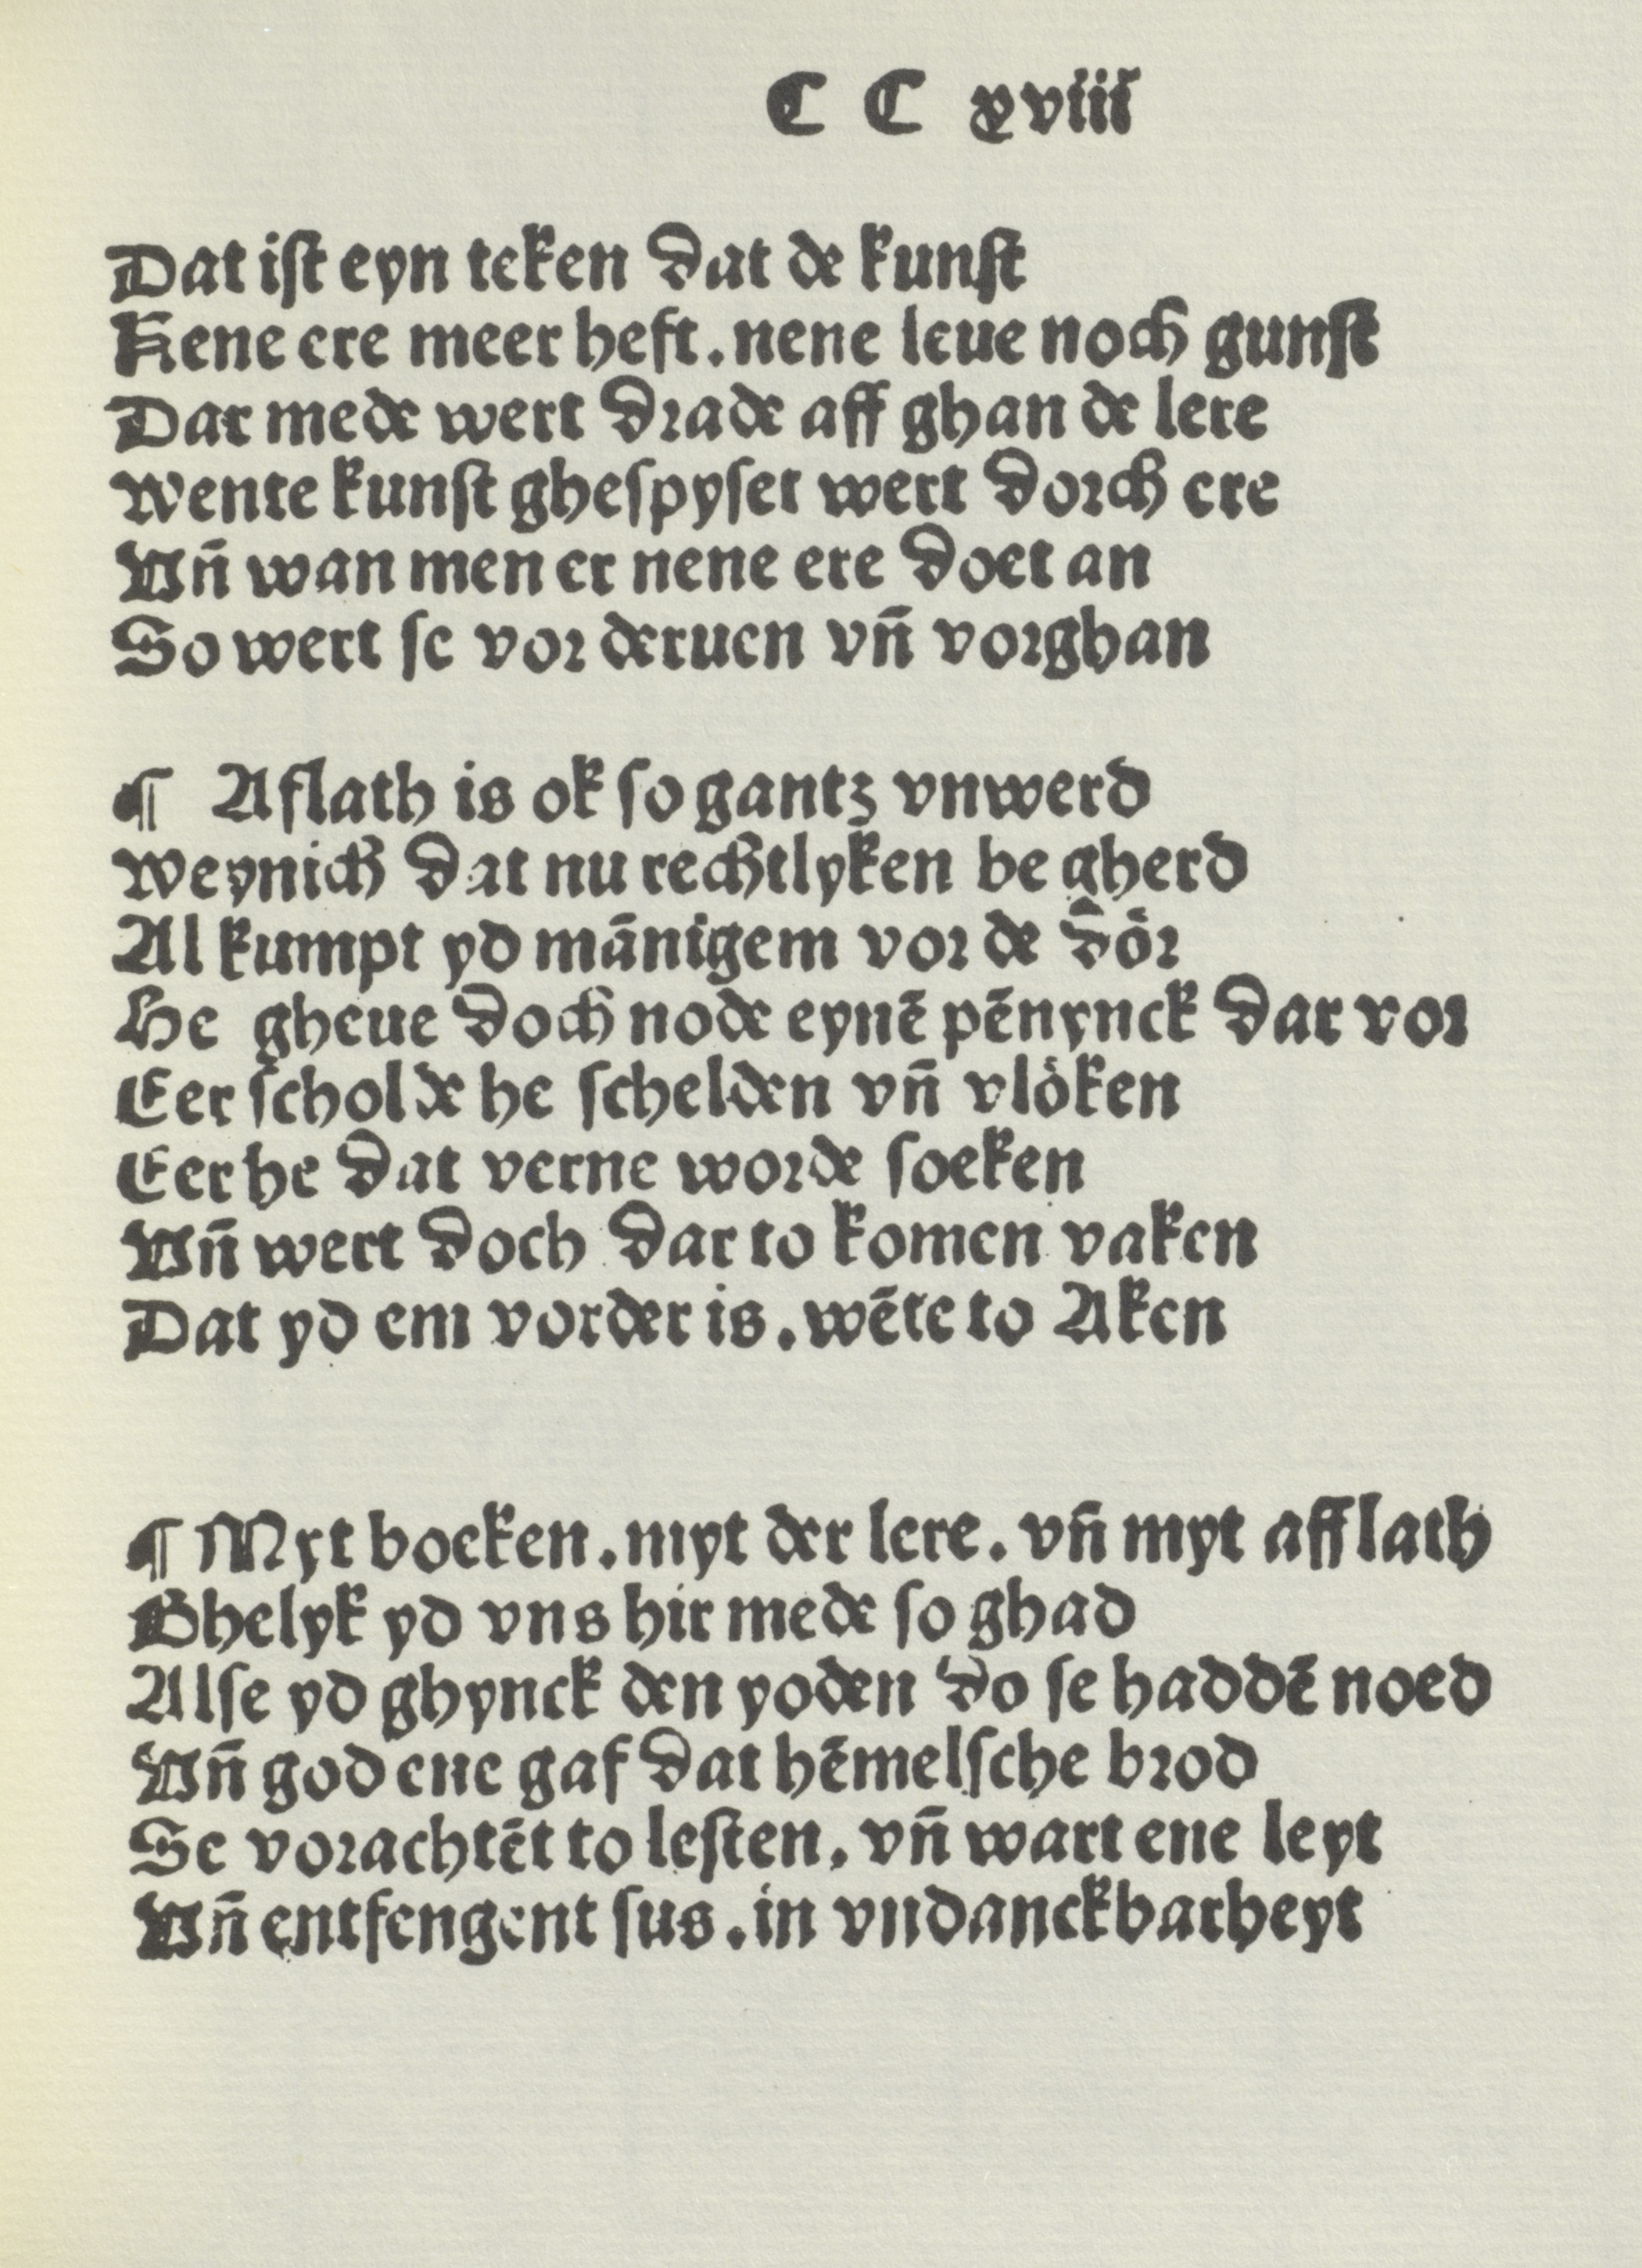 C C xviii
Dat iſt eyn teken dat de kunſt
Kene ere meer heft. nene leue noch gunſt
Dar mede wert drade aff ghan de lere
Wente kunſt gheſpyſet wert dorch ere
Vn̄ wan men er nene ere doet an
So wert ſe vor deruen vn̄ vorghan
¶ Aflath is ok ſo gantz vnwerd
Weynich dat nu rechtlyken be gherd
Al kumpt yd mānigem vor de doͤr
He gheue doch node eynē pēnynck dar vor
Eer ſcholde he ſchelden vn̄ vloͤken
Eer he dat verne worde ſoeken
Vn̄ wert doch dar to komen vaken
Dat yd em vorder is. wēte to Aken
¶ Myt boeken. myt der lere. vn̄ myt afflath
Ghelyk yd vns hir mede ſo ghad
Alſe yd ghynck den yoden do ſe haddē noed
Vn̄ god ene gaf dat hēmelſche brod
Se vorachtēt to leſten. vn̄ wart ene leyt
Vn̄ entfengent ſus. in vndanckbarheyt